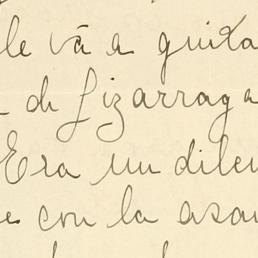 le vá a quita
de Lizarraga
Era un dilem
e con la asam